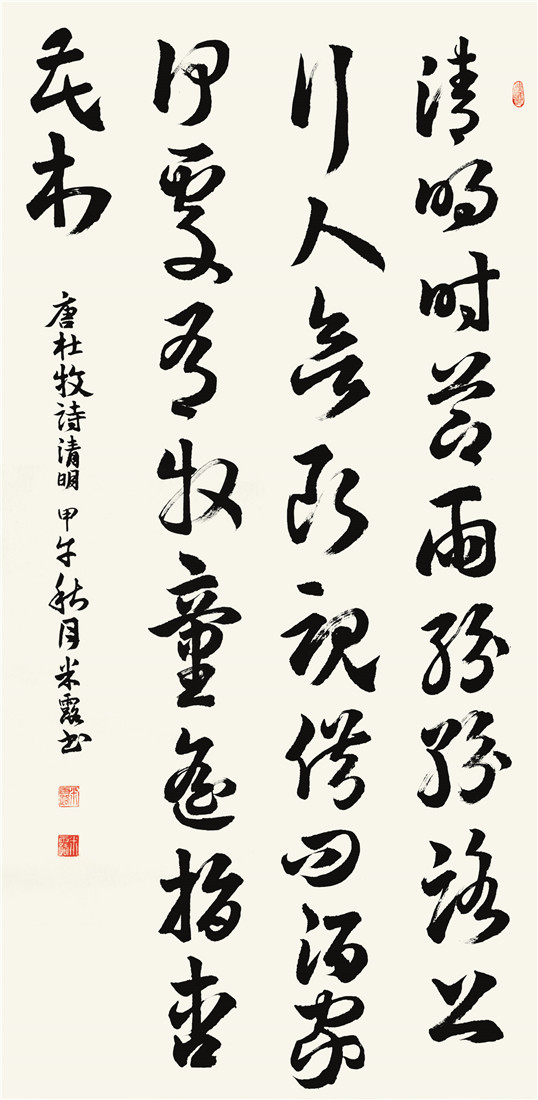 清明时节雨紛紛路上
行人欲断魂借問酒家
何處有牧童遙指杏
花村
唐杜牧詩清明甲午秋月米露书